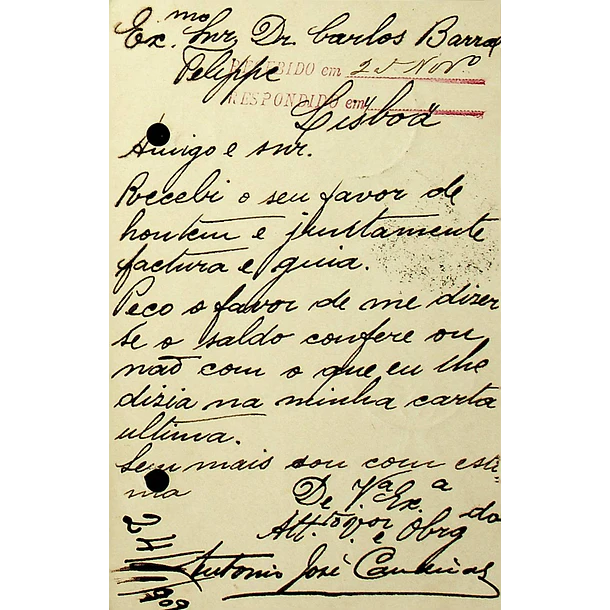 Ex.mo Snr. Dr. Carlos Barral
Felippe
RECEBIDO em 25 Novo
RESPONDIDO em "
Lisboa
Amigo e snr.
Recebi o seu favor de
hontem e juntamente
factura e guia.
Peco o favor de me dizer
se o saldo confere ou
não com o que eu lhe
dizia na minha carta
ultima.
Sem mais sou com esti-
ma
De V.a Ex.a
Att.to Vor e Obrgdo
Antonio José
24/11/909